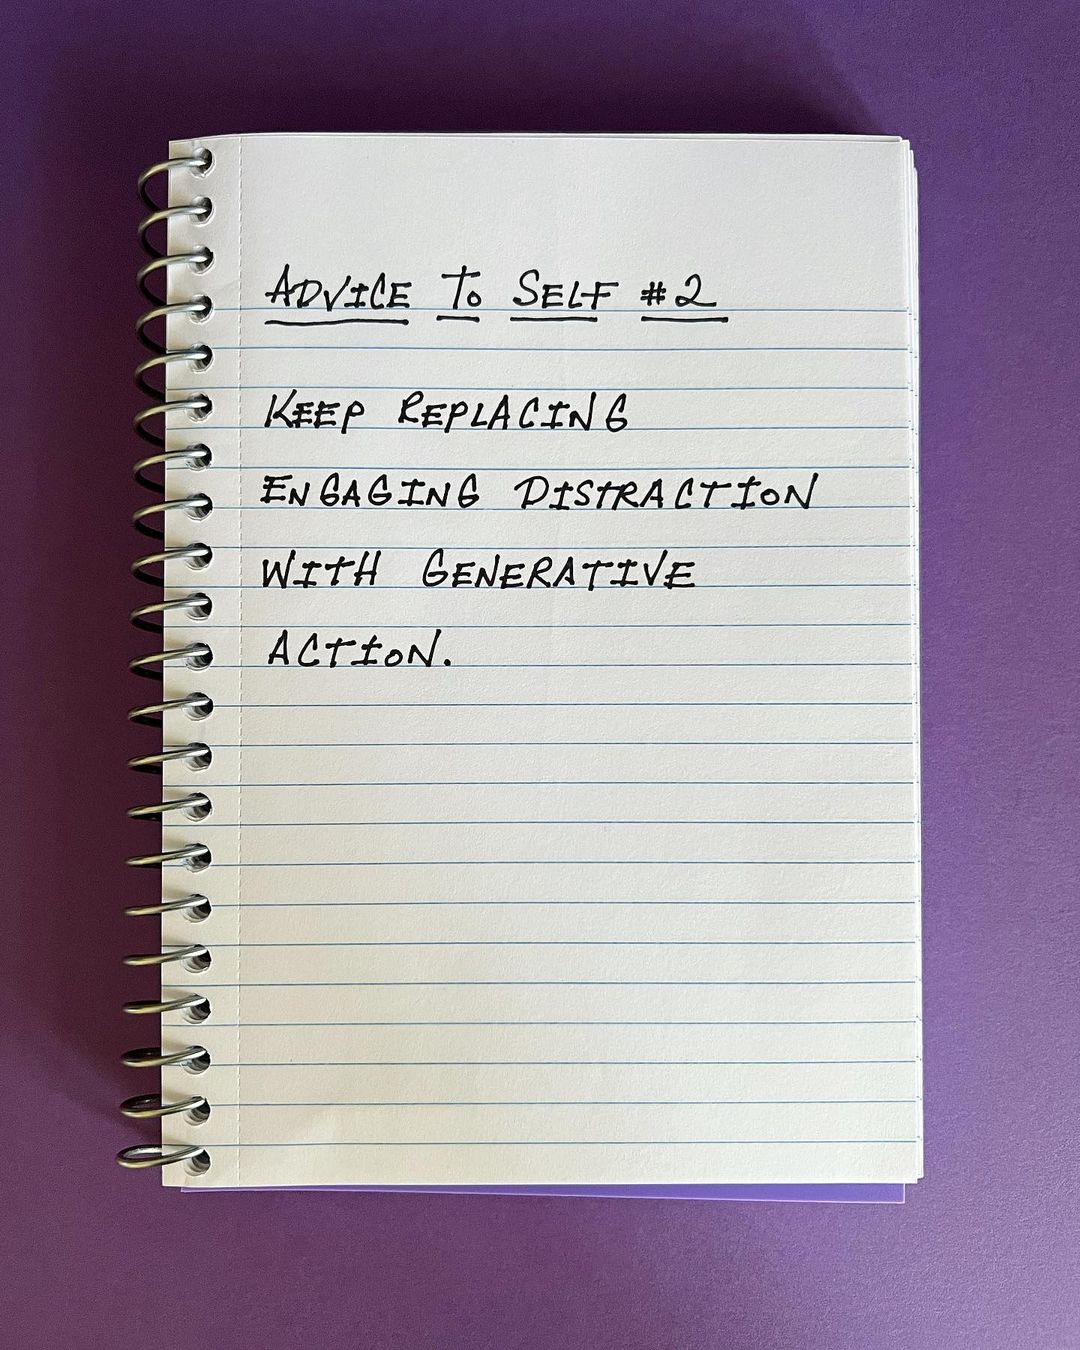 ADVICE TO SELF #2
KEEP REPLACING
ENGAGING DISTRACTION
WITH GENERATIVE
ACTION.